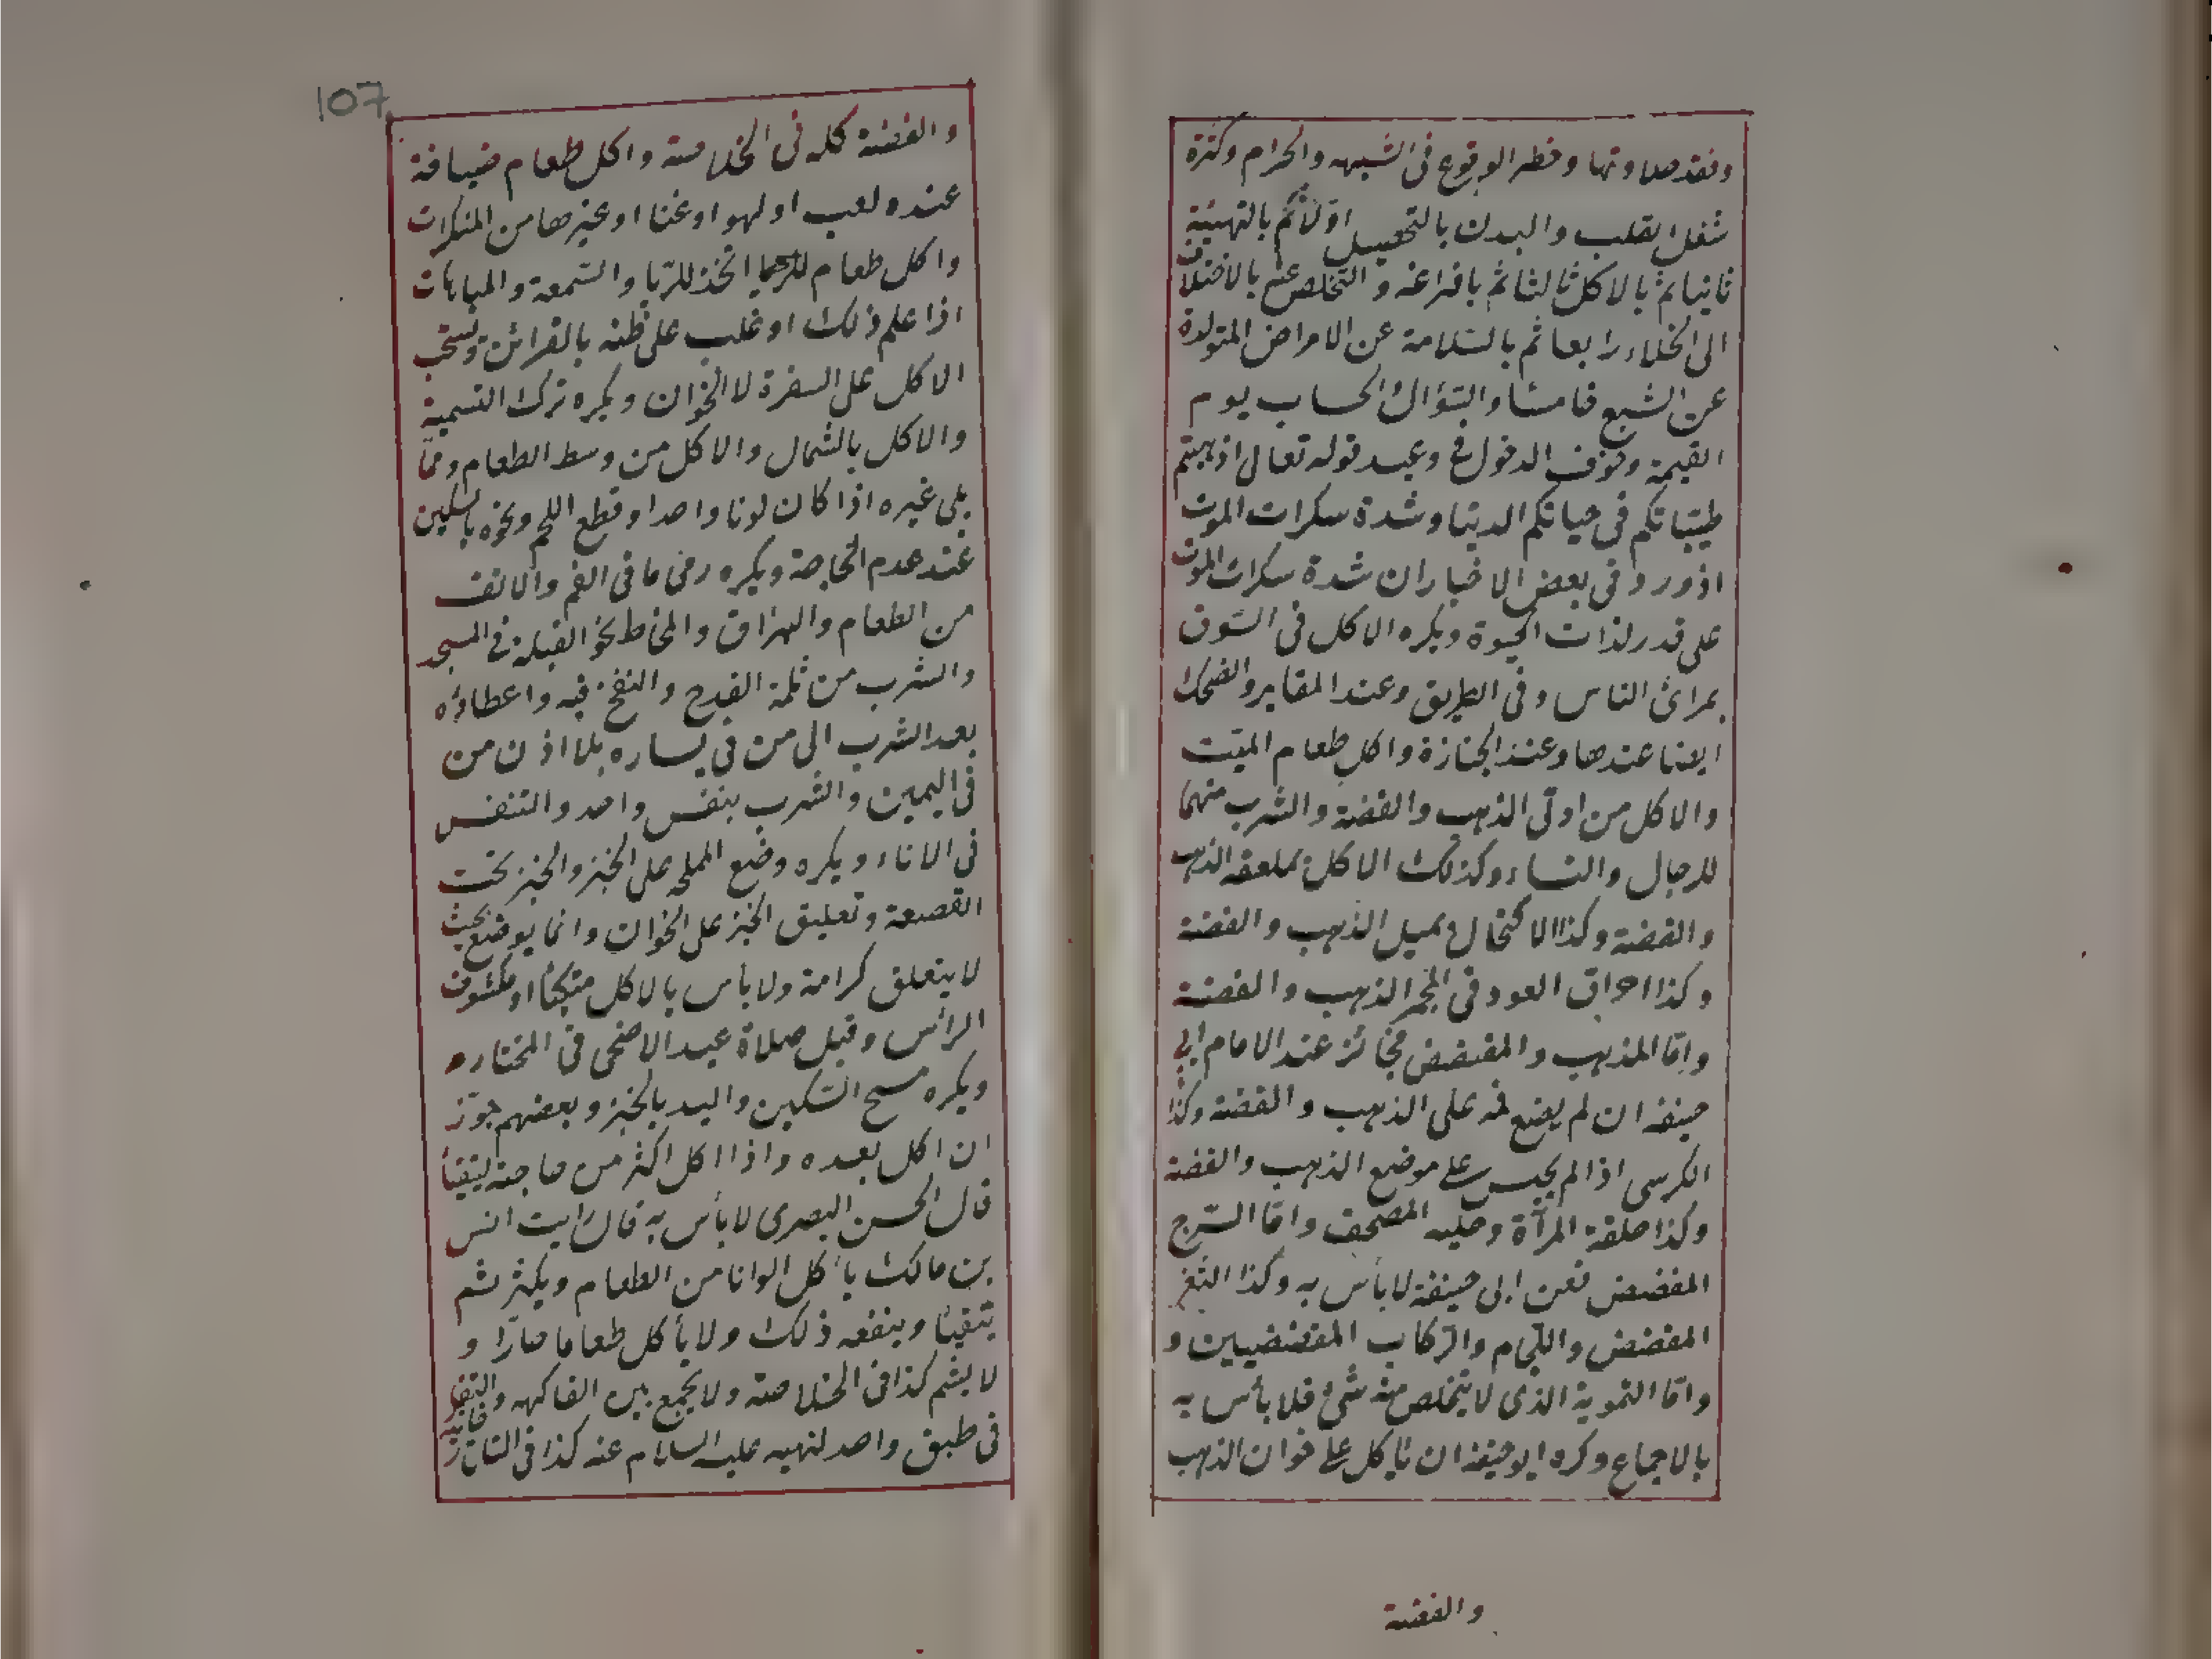 وفقد حلاوتها وخطر الوقوع فى الشبهه والحرام وكثرة
شغل القلب والبدن بالتحصيل اوّلا ثم بالتهيئة
ثانيا ثم بالاكل ثالثا ثم بافراغه والتخلص عنه بالاختلاف
الى الخلاء رابعا ثم بالسّلامة عن الامراض المتولدة
عن الشبع خامسا والسّؤال والحساب يوم
القيمة وخوف الدخول فى وعيد قوله تعالى اذهبتم
طيّباتكم فى حياتكم الدنيا وشدة سكرات الموت
اذ ورد فى بعض الاخبار ان شدة سكرات الموت
على قدر لذات الحيوة ويكره الاكل فى السّوق
بمرائ الناس وفى الطريق وعند المقابر والضحك
ايضا عندها وعند الجنازة واكل طعام الميّت
والاكل من اوانى الذهب والفضة والشرب منهما
للرجال والنساء وكذلك الاكل بملعقه الذهب
والفضة وكذا الاكتحال بميل الذهب والفضة
وكذا احراق العود فى المجمر الذهب والفضة
وامّا المذهب والمفضض فجائز عند الامام ابى
حنيفه ان لم يضع فمه على الذهب والفضة وكذا
الكرسى اذا لم يجلس على موضع الذهب والفضة
وكذا حلقة المرآة وحليه المصحف وامّا السّرج
المفضض فعن ابى حنيفة لا بأس به وكذا الثغر
المفضض واللّجام والرّكاب المفضضيين و
وامّا التمويه الذى لا يتخلص منه شئ فلا بأس به
بالاجماع وكره ابو حنيفة ان يأكل على خوان الذهب
والفضة
107
والفضة كله فى الخلاصة واكل طعام ضيافة
عنده لعب او لهو او غنا او غيرها من المنكرات
واكل طعام اتخذ للرّيا والسّمعة والمباهات
اذا علم ذلك او غلب على ظنه بالقرائن ويستحب
الاكل على السفرة لا الخوان ويكره ترك التسمية
والاكل بالشمال والاكل من وسط الطعام وممّا
يلى غيره اذا كان لونا واحدا وقطع اللحم ونحوه بالسكين
عند عدم الحاجة ويكره رمى ما فى الفم والانف
من الطعام والبزاق والمخاط نحو القبلة فى المسجد
والشرب من ثلمة القدح والنفخ فيه واعطاؤه
بعد الشرب الى من فى يساره بلا اذن من
فى اليمين والشرب بنفس واحد والتنفس
فى الاناء ويكره وضع المملحه على الخبز والخبز تحت
القصعة وتعليق الخبز على الخوان وانما يوضع بحيث
لا يتعلق كرامة ولا بأس بالاكل متكئا او مكشوف
الرأس وقبل صلاة عيد الاضحى فى المختاره
ويكره مسح السّكين واليد بالخبز وبعضهم جوّز
ان اكل بعده واذا اكل اكثر من حاجته ليتقيأ
قال الحسن البصرى لا بأس به قال رايت انس
بن مالك يأكل الوانا من الطعام ويكثر ثم
يتقيأ وينفعه ذلك ولا يأكل طعاما حارّا و
لا يشم كذا فى الخلاصة ولا يجمع بين الفاكهه والثفل
فى طبق واحد لنهيه عليه السلام عنه كذا فى التاتارخانيه